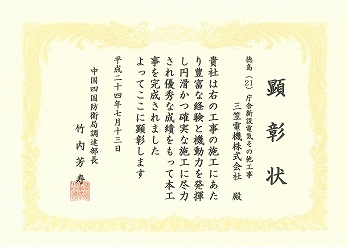 顕彰状
徳島(21)庁舎新設電気その他工事
三笠電機株式会社 殿
貴社は右の工事の施工にあた
り豊富な経験と機動力を発揮
し円滑かつ確実な施工に尽力
され優秀な成績をもって本工
事を完成されました
よってここに顕彰します
平成二十四年七月十三日
中国四国防衛局調達部長
竹内芳寿